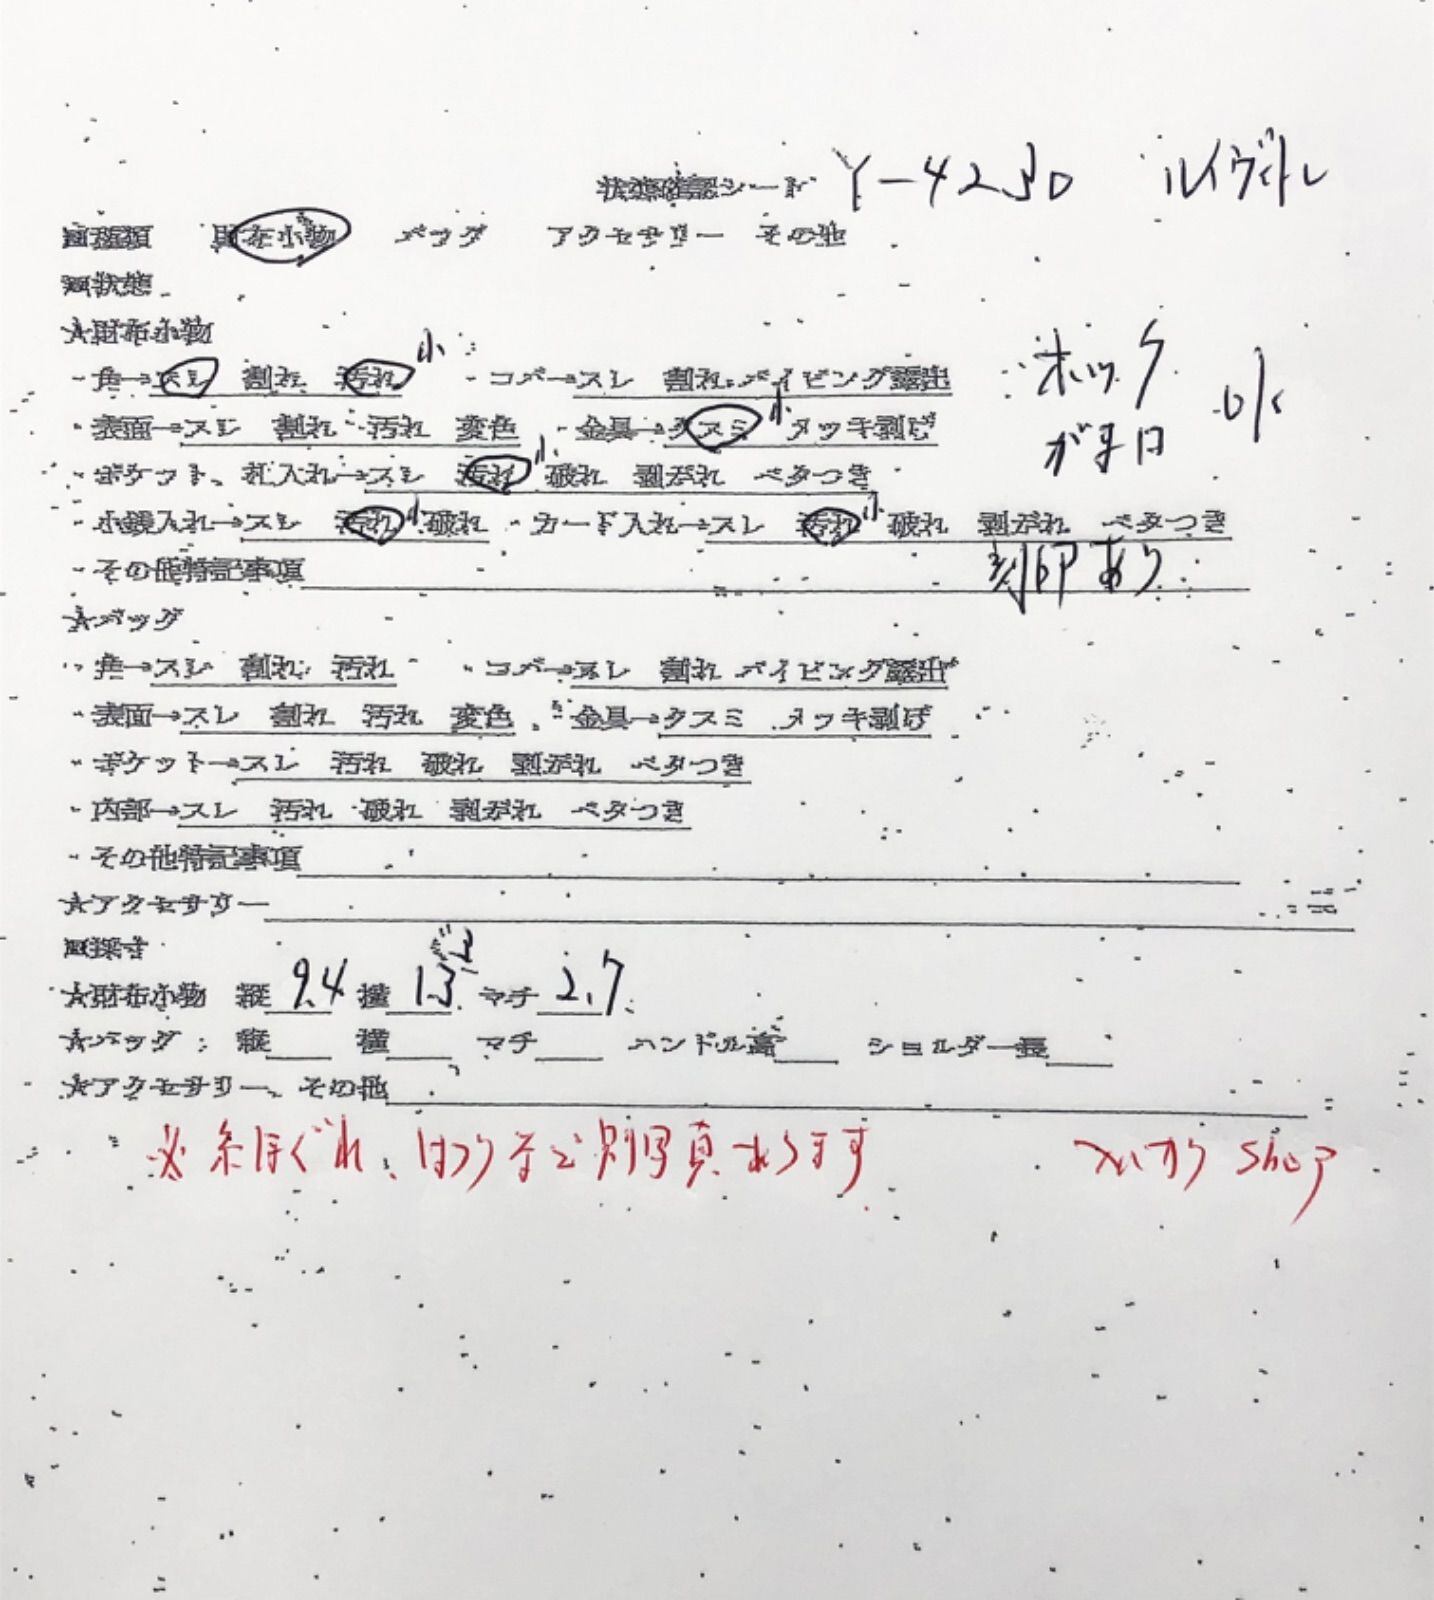 状態確認シート Y-4230 ルイヴィトン
■種類 財布小物 バッグ アクセサリー その他
■状態
★財布小物
・角→スレ 割れ 汚れ 小 ・コバ→スレ 割れ パイピング露出
ホック
がま口 OK
・表面→スレ 割れ 汚れ 変色 ・金具→クスミ 小 メッキ剥げ
・ポケット、札入れ→スレ 汚れ 小 破れ 剥がれ ベタつき
・小銭入れ→スレ 汚れ 小 破れ ・カード入れ→スレ 汚れ 小 破れ 剥がれ ベタつき
・その他特記事項 刻印あり
★バッグ
・角→スレ 割れ 汚れ ・コバ→スレ 割れ パイピング露出
・表面→スレ 割れ 汚れ 変色 ・金具→クスミ メッキ剥げ
・ポケット→スレ 汚れ 破れ 剥がれ ベタつき
・内部→スレ 汚れ 破れ 剥がれ ベタつき
・その他特記事項
★アクセサリー
■採寸
★財布小物 縦 9.4 横 13 マチ 2.7
★バッグ: 縦 横 マチ ハンドル高 ショルダー長
★アクセサリー、その他
※糸ほぐれ、はつりなど別写真あります
shop